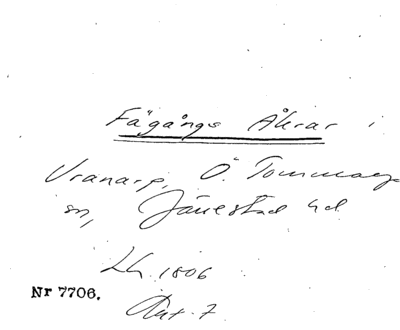 Fägångs Åkrar i
Vranarp, Ö. Tommarp
sn, Järrestad hd
Lh. 1806
Nr 7706.
Akt. 7